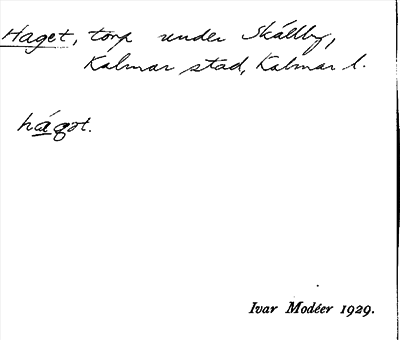 Haget, torp under Skälby,
Kalmar stad, Kalmar l.
hágət.
Ivar Modéer 1929.